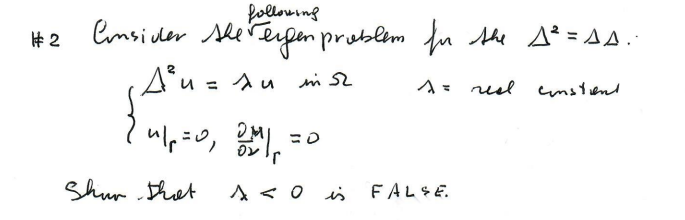 #2 Consider the following eigenproblem for the Δ² = ΔΔ.
{ Δ²u = λu in Ω λ = real constant
u|_Γ = 0, ∂u/∂ν|_Γ = 0
Show that λ < 0 is FALSE.